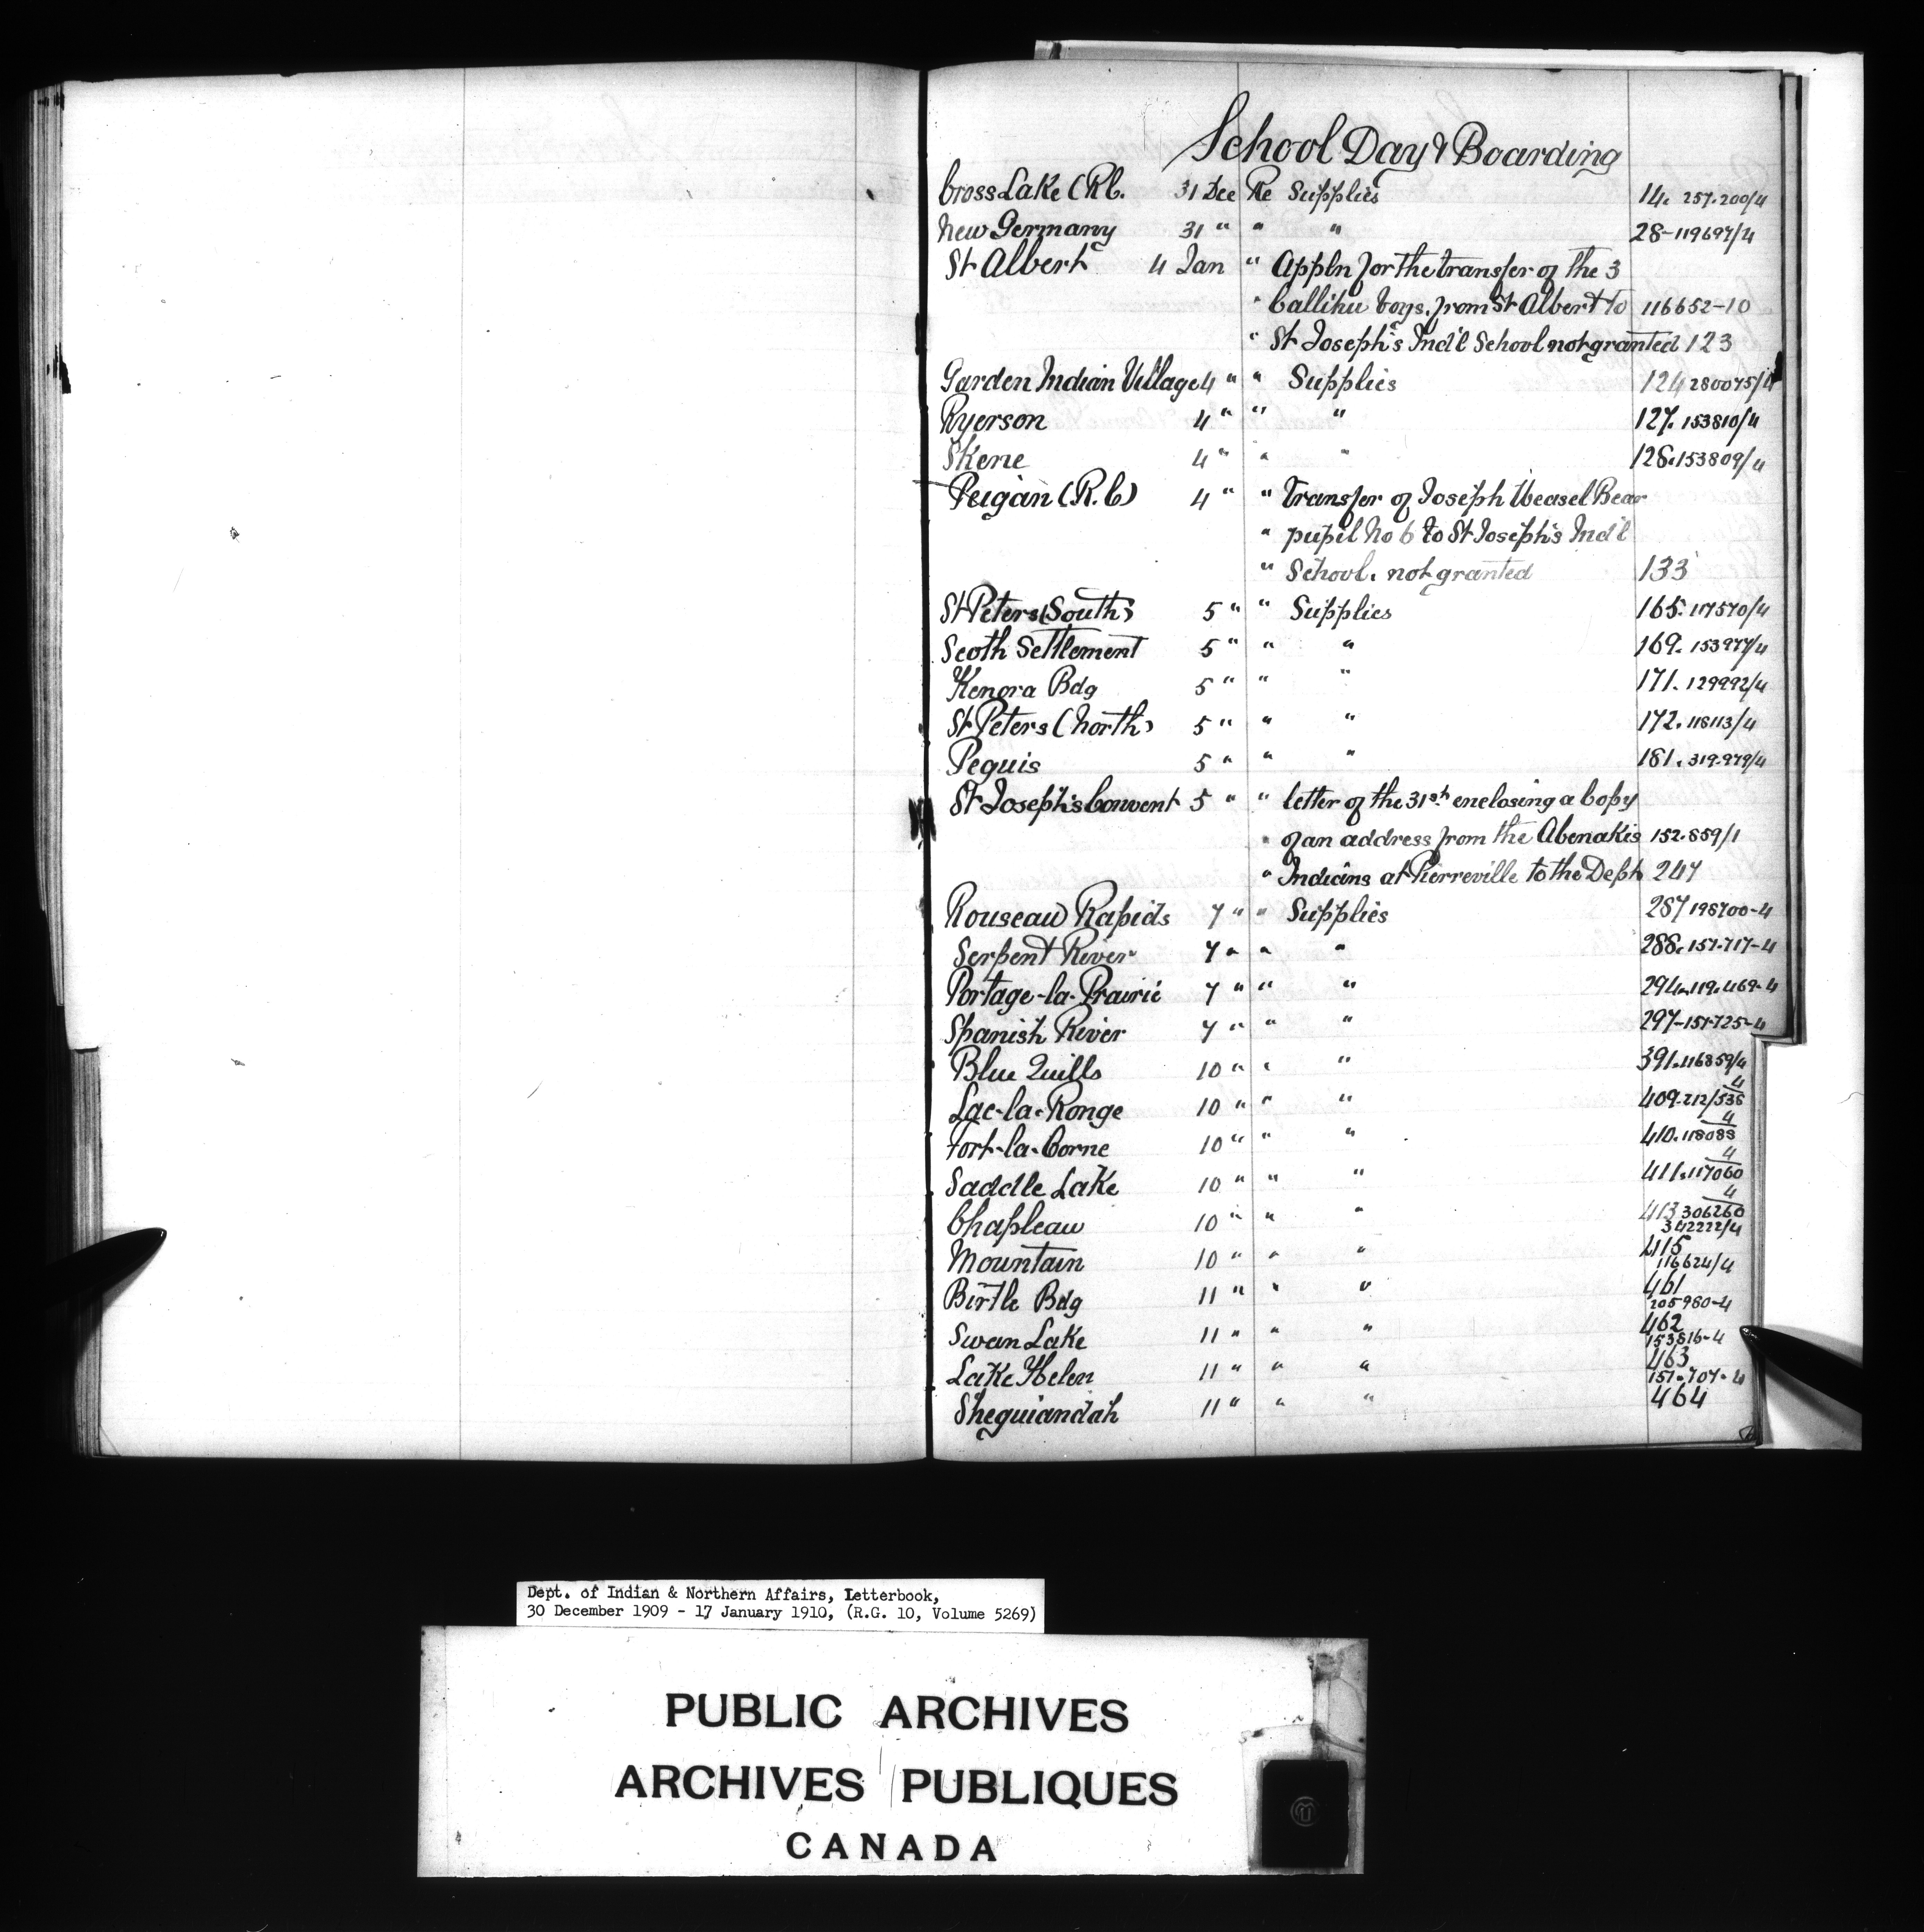 School Day & Boarding
Cross Lake (R.C. 31 Dec Re Supplies 14. 257.200/4
New Germany 31 " " " 28-119697/4
St Albert 4 Jan " Appln for the transfer of the 3
" Callihu boys, from St Albert to 116652-10
" St Joseph's Ind'l School not granted 123
Garden Indian Village 4 " " Supplies 124 280075/4
Ryerson 4 " " " 127. 153810/4
Skene 4 " " " 128.153809/4
Peigan (R.C) 4 " " Transfer of Joseph Weasel Bear
" pupil No 6 to St Joseph's Ind'l
" School. not granted 133
St Peters (South) 5 " " Supplies 165. 117570/4
Scoth Settlement 5 " " " 169. 153977/4
Kenora Bdg 5 " " " 171. 129992/4
St Peters (North) 5 " " " 172. 118113/4
Peguis 5 " " " 181. 319.979/4
St Joseph's Convent 5 " " letter of the 31st enclosing a Copy
" of an address from the Abenakis 152.859/1
" Indians at Pierreville to the Dept 247
Rouseau Rapids 7 " " Supplies 287 198700-4
Serpent River 7 " " " 288. 157.717-4
Portage-la-Prairie 7 " " " 294.119.469-4
Spanish River 7 " " " 297-157.725-4
Blue Quills 10 " " " 391.116859/4
Lac-la-Ronge 10 " " " 409.212/538 4
Fort-la-Corne 10 " " " 410.118088 4
Saddle Lake 10 " " " 411.117060 4
Chapleau 10 " " " 413 306260 4
342222/4
Mountain 10 " " " 415
116624/4
Birtle Bdg 11 " " " 461
205980-4
Swan Lake 11 " " " 462
153816-4
Lake Helen 11 " " " 463
157-707-4
Sheguiandah 11 " " " 464
Dept. of Indian & Northern Affairs, Letterbook,
30 December 1909 - 17 January 1910, (R.G. 10, Volume 5269)
PUBLIC ARCHIVES
ARCHIVES PUBLIQUES
CANADA